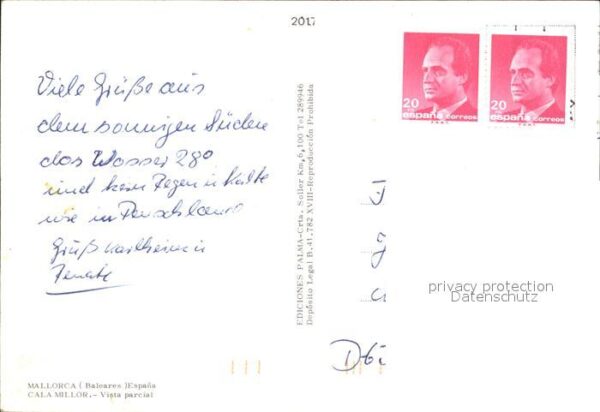 2017
Viele Grüße aus
dem sonnigen Süden
das Wasser 28°
und kein Regen u Kälte
wie in Deutschland
Gruß Karlheinz u
Renate
EDICIONES PALMA-Crta. Soller Km,6,100 T-ol 289946
Depósito Legal B.41.782 XVIII-Reproducción Prohibida
20
españa correos
20
españa correos
privacy protection
Datenschutz
MALLORCA ( Baleares )España
CALA MILLOR.- Vista parcial